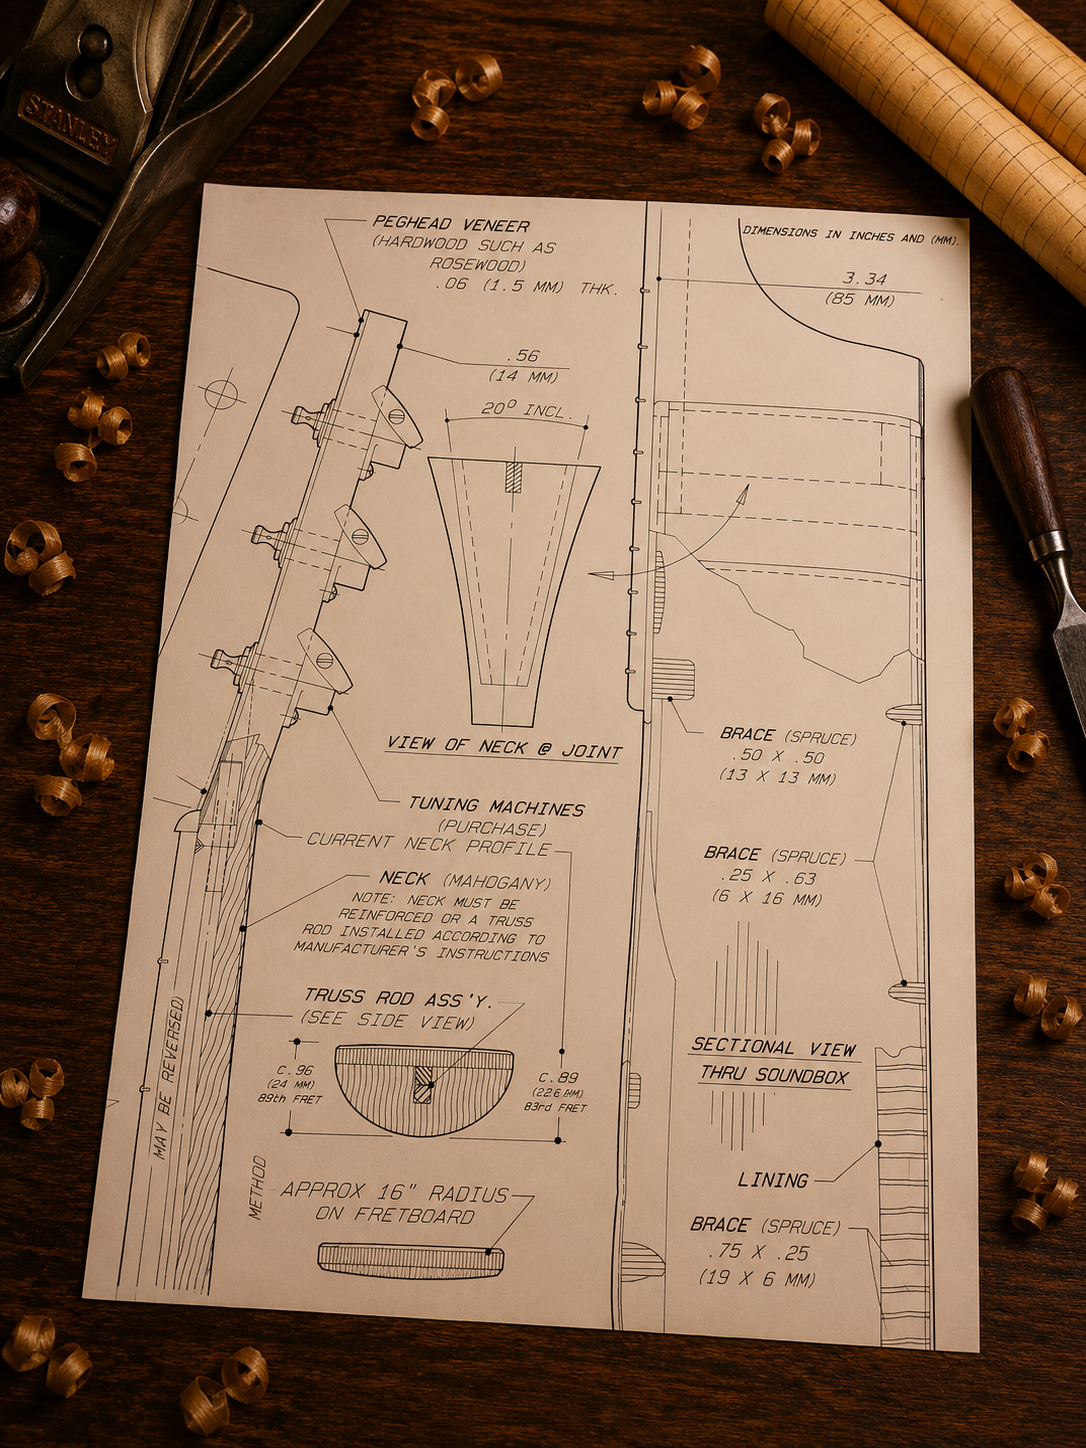 STANLEY
PEGHEAD VENEER
(HARDWOOD SUCH AS
ROSEWOOD)
.06 (1.5 MM) THK.
DIMENSIONS IN INCHES AND (MM).
3.34
(85 MM)
.56
(14 MM)
20° INCL.
VIEW OF NECK @ JOINT
TUNING MACHINES
(PURCHASE)
CURRENT NECK PROFILE
NECK (MAHOGANY)
NOTE: NECK MUST BE
REINFORCED OR A TRUSS
ROD INSTALLED ACCORDING TO
MANUFACTURER'S INSTRUCTIONS
TRUSS ROD ASS'Y.
(SEE SIDE VIEW)
C.96
(24 MM)
89th FRET
C.89
83rd FRET
MAY BE REVERSED
METHOD
APPROX 16" RADIUS
ON FRETBOARD
BRACE (SPRUCE)
.50 X .50
(13 X 13 MM)
BRACE (SPRUCE)
.25 X .63
(6 X 16 MM)
SECTIONAL VIEW
THRU SOUNDBOX
LINING
BRACE (SPRUCE)
.75 X .25
(19 X 6 MM)